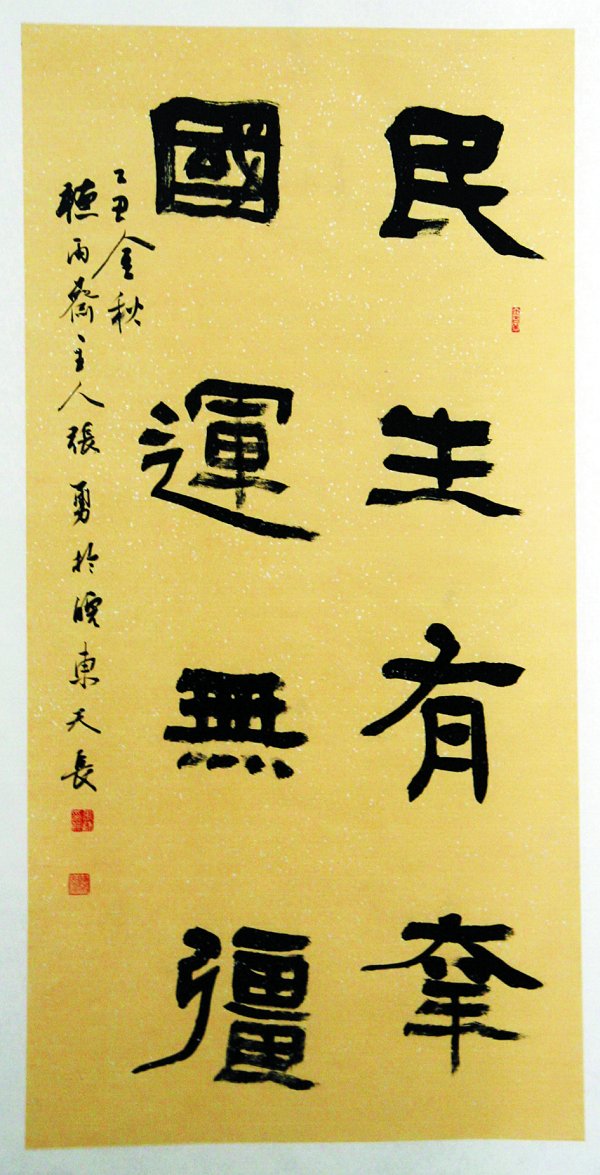 民生有幸
國運無彊
己丑金秋
聽雨齋主人張勇於皖東天長